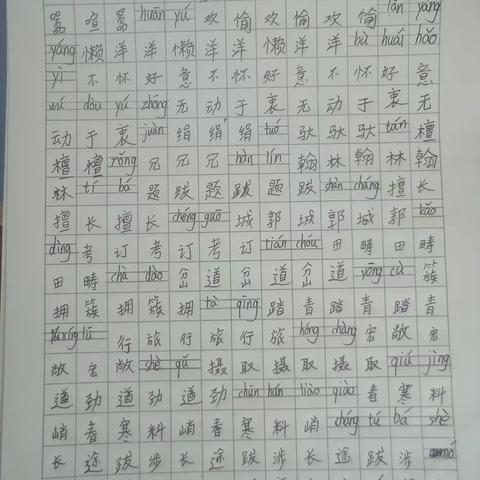 嚣 喧 嚣 huān yú 欢 愉 欢 愉 欢 愉 lǎn yáng
yáng 懒 洋 洋 懒 洋 洋 懒 洋 洋 bù huái hǎo
yì 不 怀 好 意 不 怀 好 意 不 怀 好 意
wú dòu yú zhōng 无 动 于 衷 无 动 于 衷 无
动 于 衷 juàn 绢 绢 绢 tuó 驮 驮 驮 tán 檀
檀 檀 rǒng 冗 冗 冗 hàn lín 翰 林 翰 林 翰
林 tí bá 题 跋 题 跋 题 跋 shàn cháng 擅 长
擅 长 擅 长 chéng guō 城 郭 城 郭 城 郭 kǎo
dìng 考 订 考 订 考 订 tián chóu 田 畴 田 畴
田 畴 chà dào 岔 道 岔 道 岔 道 yōng cù 簇
拥 簇 拥 簇 拥 tà qīng 踏 青 踏 青 踏 青
xíng lǚ 行 旅 行 旅 行 旅 hóng chǎng 宏 敞 宏
敞 宏 敞 shè qǔ 摄 取 摄 取 摄 取 qiú jìng
遒 劲 遒 劲 遒 劲 chūn hán liào qiào 春 寒 料
峭 春 寒 料 峭 春 寒 料 峭 cháng tú bá shè
长 途 跋 涉 长 途 跋 涉 长 途 跋 涉 mó